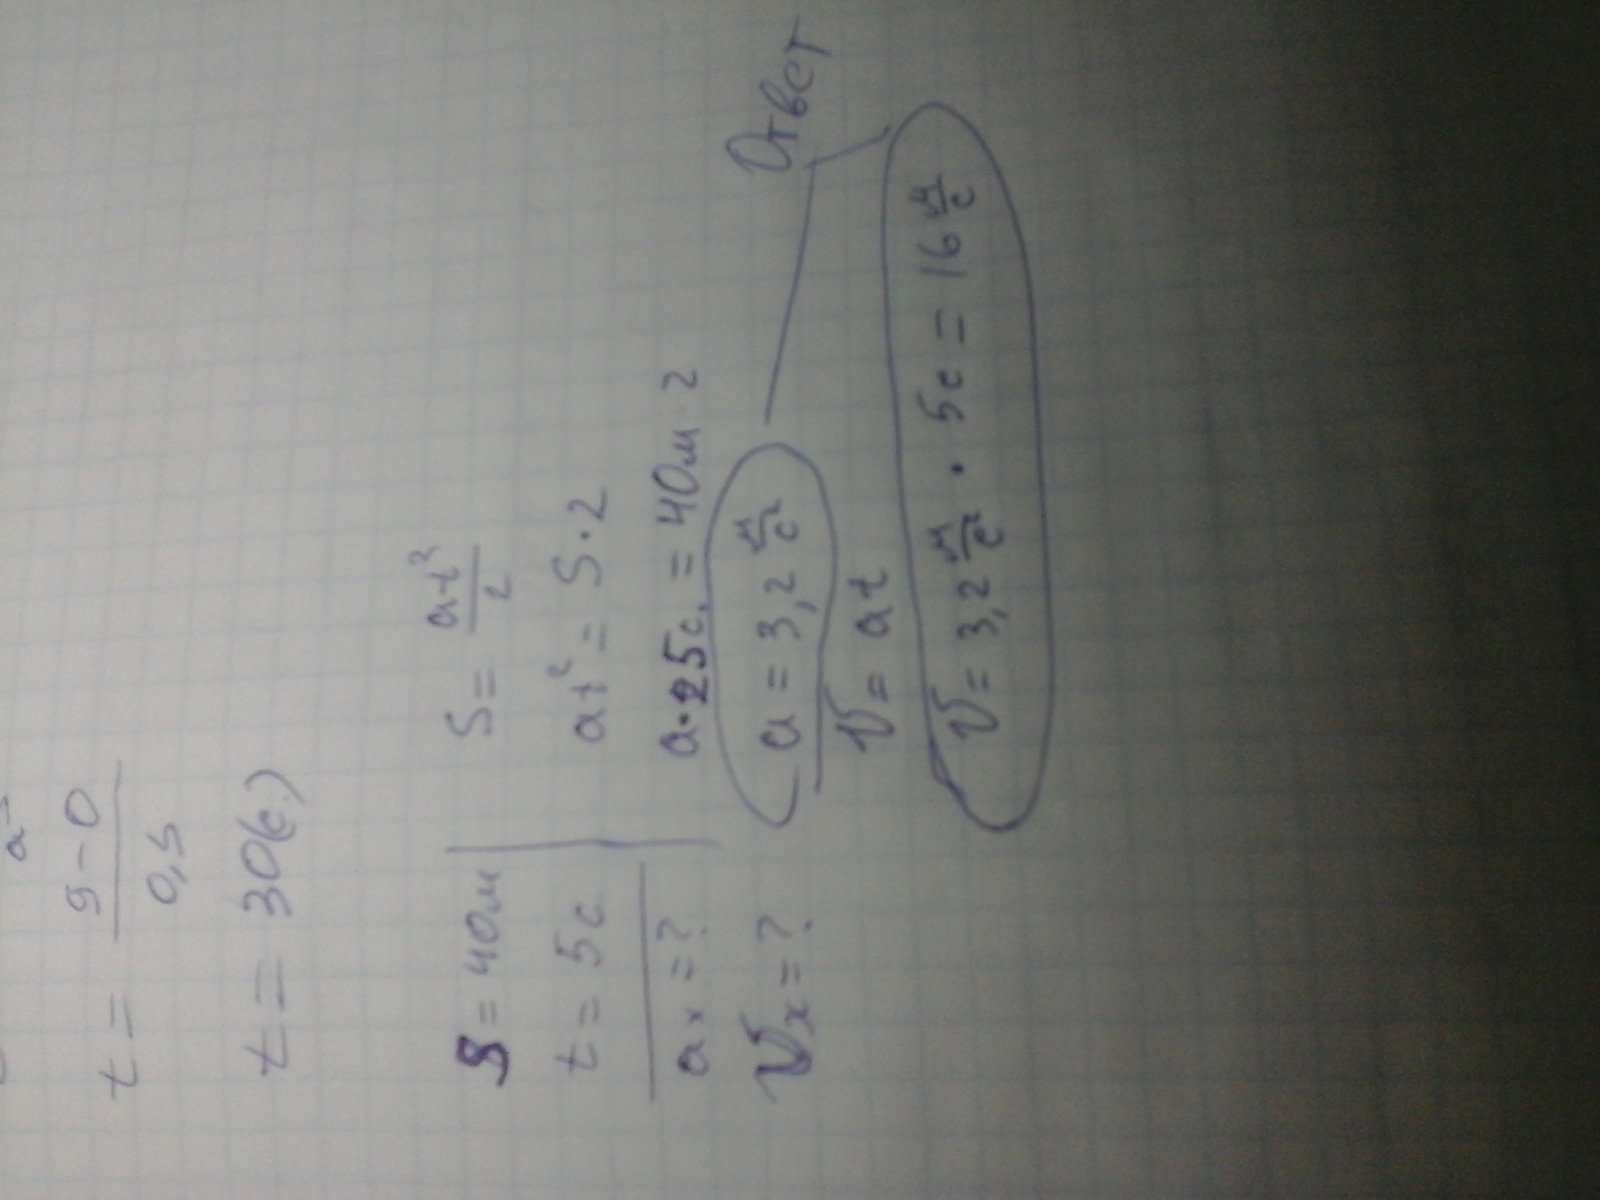 a
t = 9-0 / 0,5
t = 30(c.)
S = 40м
t = 5c
ax = ?
Vx = ?
S = at² / 2
at² = S·2
a·25c. = 40м·2
a = 3,2 м/c²
V = at
V = 3,2 м/c² · 5c = 16 м/c
Ответ